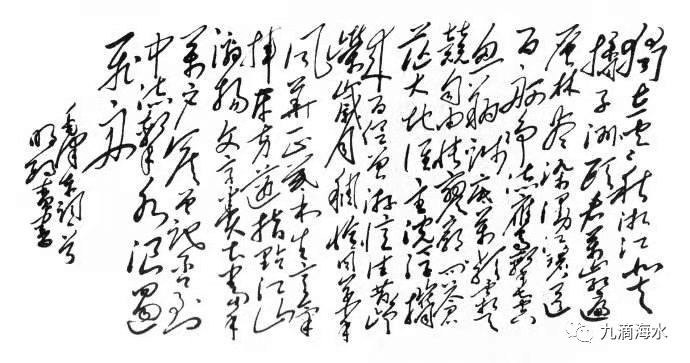 独立寒秋湘江北去
橘子洲头看万山红遍
层林尽染漫江碧透
百舸争流鹰击长空
鱼翔浅底万类霜天
竞自由怅寥廓问苍
茫大地谁主沉浮携
来百侣曾游忆往昔峥
嵘岁月稠恰同学少年
风华正茂书生意气
挥斥方遒指点江山
激扬文字粪土当年
万户侯曾记否到
中流击水浪遏
飞舟
毛泽东词
书
九滴海水